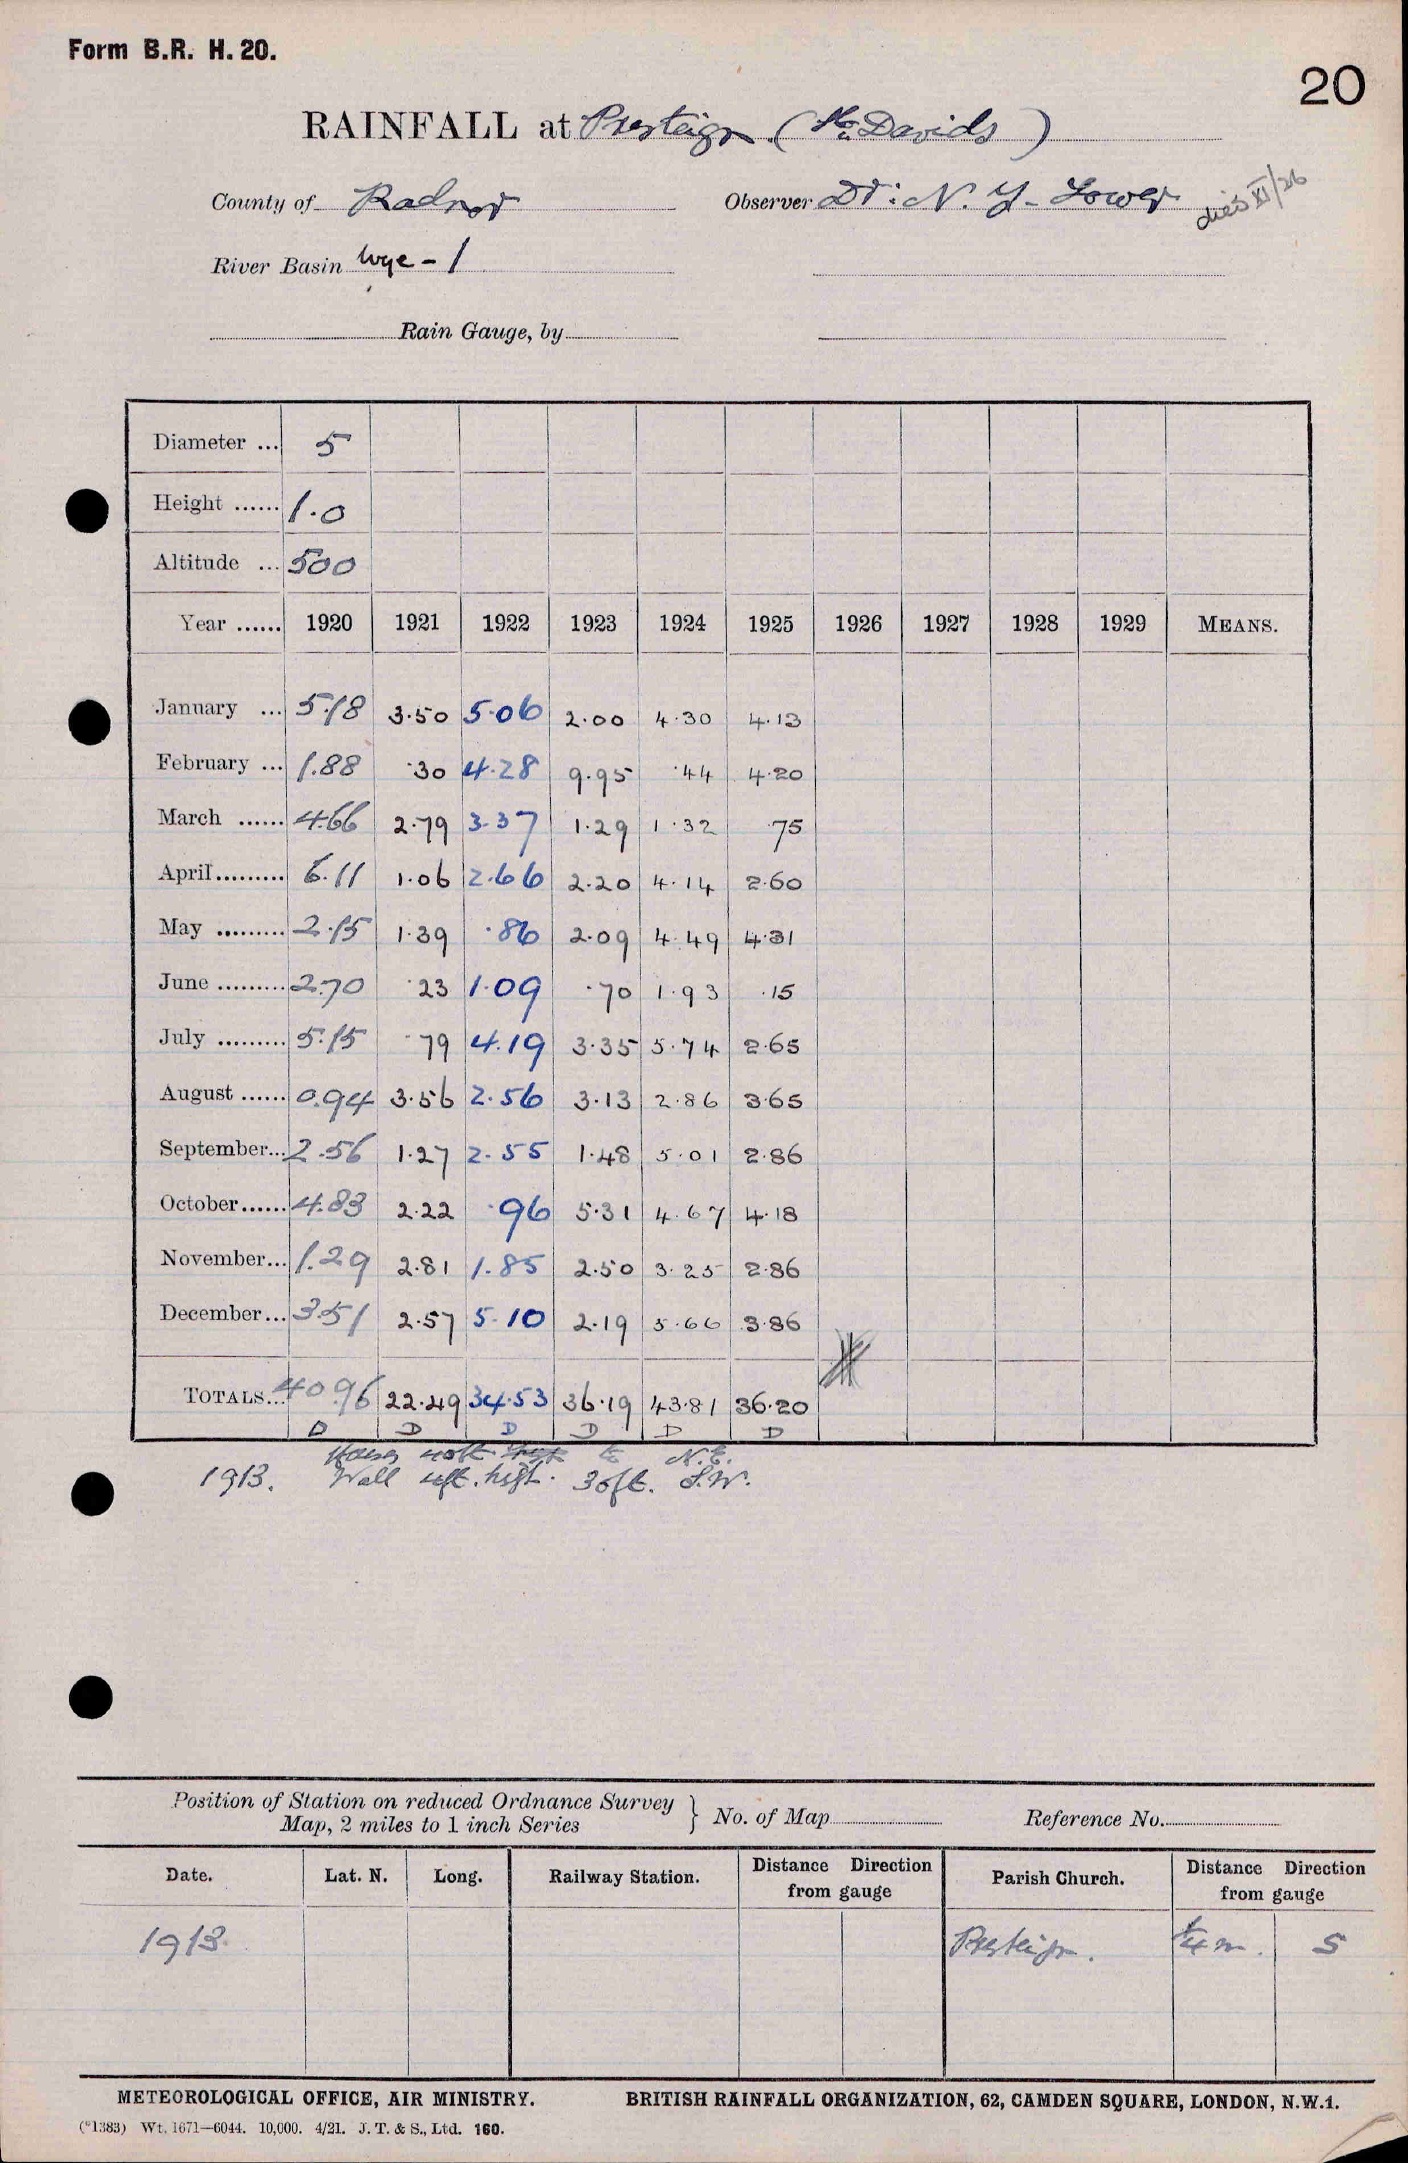 Form B.R. H. 20.
20
RAINFALL at Presteign (St. Davids)
County of Radnor Observer Dr. N. Y. Lower died XI/26
River Basin Wye - 1
Rain Gauge, by
Diameter ... 5
Height ...... 1.0
Altitude ... 500
Year ...... 1920 1921 1922 1923 1924 1925 1926 1927 1928 1929 MEANS.
January ... 5.18 3.50 5.06 2.00 4.30 4.13
February ... 1.88 .30 4.28 9.95 .44 4.20
March ...... 4.66 2.79 3.37 1.29 1.32 .75
April......... 6.11 1.06 2.66 2.20 4.14 2.60
May ......... 2.15 1.39 .86 2.09 4.49 4.31
June ......... 2.70 .23 1.09 .70 1.93 .15
July ......... 5.15 .79 4.19 3.35 5.74 2.65
August ...... 0.94 3.56 2.56 3.13 2.86 3.65
September... 2.56 1.27 2.55 1.48 5.01 2.86
October...... 4.83 2.22 .96 5.31 4.67 4.18
November... 1.29 2.81 1.85 2.50 3.25 2.86
December... 3.51 2.57 5.10 2.19 5.66 3.86
TOTALS... 40.96 22.49 34.53 36.19 43.81 36.20
D D D D D D
N.E.
1913. Wall 4ft. high. 30ft. S.W.
Position of Station on reduced Ordnance Survey
Map, 2 miles to 1 inch Series } No. of Map Reference No.
Date. Lat. N. Long. Railway Station. Distance Direction from gauge Parish Church. Distance Direction from gauge
1913. Presteign. 1/4 m. S
METEOROLOGICAL OFFICE, AIR MINISTRY. BRITISH RAINFALL ORGANIZATION, 62, CAMDEN SQUARE, LONDON, N.W.1.
(*1383) Wt. 1671—6044. 10,000. 4/21. J. T. & S., Ltd. 160.